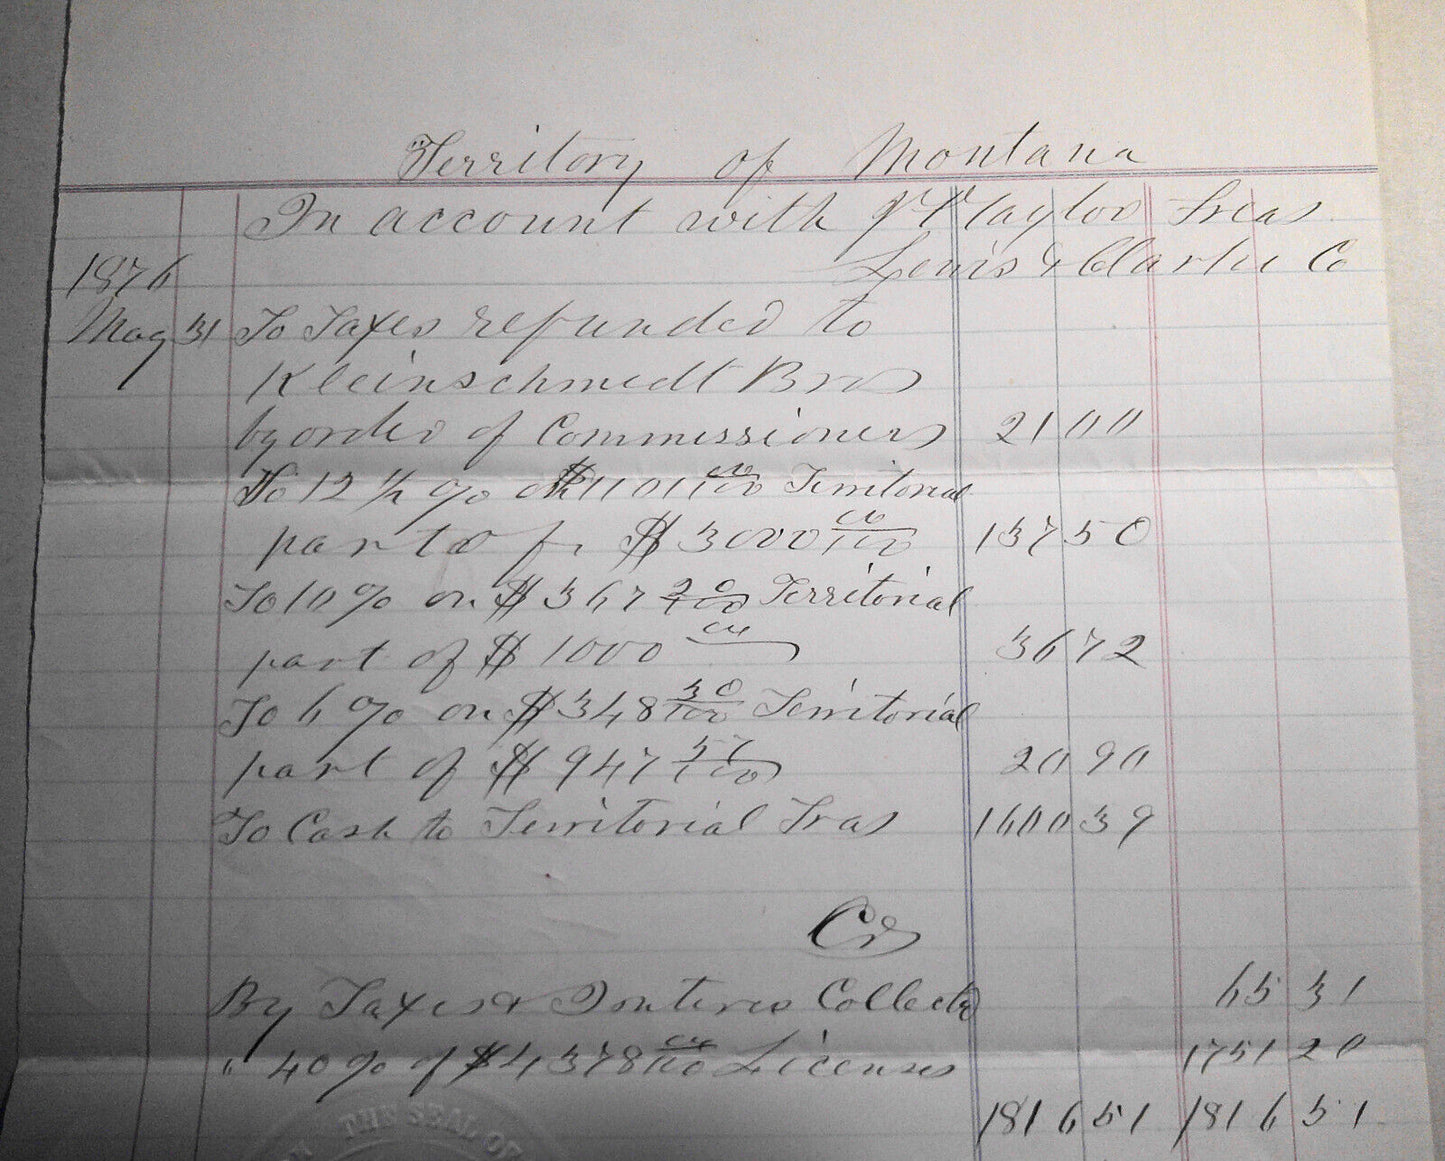 Territory of Montana
In account with J T Taylor Treas
Lewis & Clarke Co
1876
May 31 To Taxes refunded to
Kleinschmidt Bros
by order of Commissioners 21 00
To 12 1/2 % on $1101 00/100 Territorial
part of $3000 00/100 137 50
To 10 % on $367 20/100 Territorial
part of $1000 00 36 72
To 6 % on $348 30/100 Territorial
part of $947 57/100 20 90
To Cash to Territorial Tras 1600 39
Cr
By Taxes & Interes Collected 65 31
" 40 % of $4378 00/100 Licenses 1751 20
1816 51 1816 51
THE SEAL OF